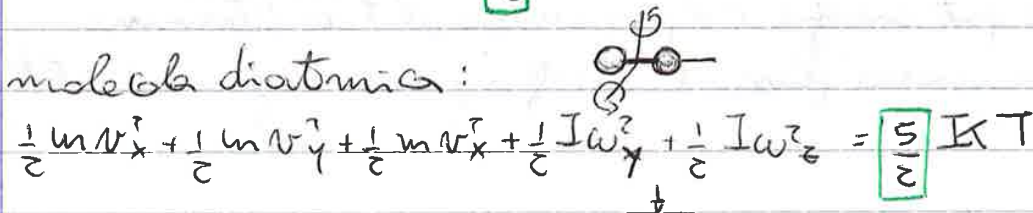 molecola diatomica:
½ m v²ₓ + ½ m v²ᵧ + ½ m v²ₓ + ½ I ω²ᵧ + ½ I ω²_z = 5/2 K T